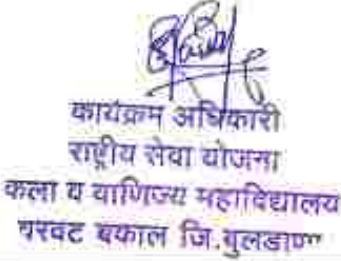 कार्यक्रम अधिकारी
राष्ट्रीय सेवा योजना
कला व वाणिज्य महाविद्यालय
वरवट बकाल जि.बुलडाणा